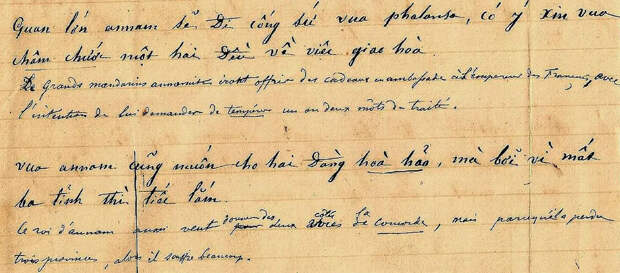 Quan lớn annam sẽ Đi cống sứ vua phalansa, có ý xin vua
châm chước một hai Đều về viêc giao hoà.
Le Grands mandarins annamit iront offrir des cadeaux en ambassade à l'empereur des Français, avec
l'intention de lui demander de tempérer un ou deux môts du traité.
vua annam cũng muốn cho hai Đàng hoà hảo, mà bởi vì mất
ba tỉnh thì tiếc lắm.
le roi d'annam aussi veut pour des deux côtés la concorde, mais parcequ'il a perdu
trois provinces, alors il souffre beaucoup.